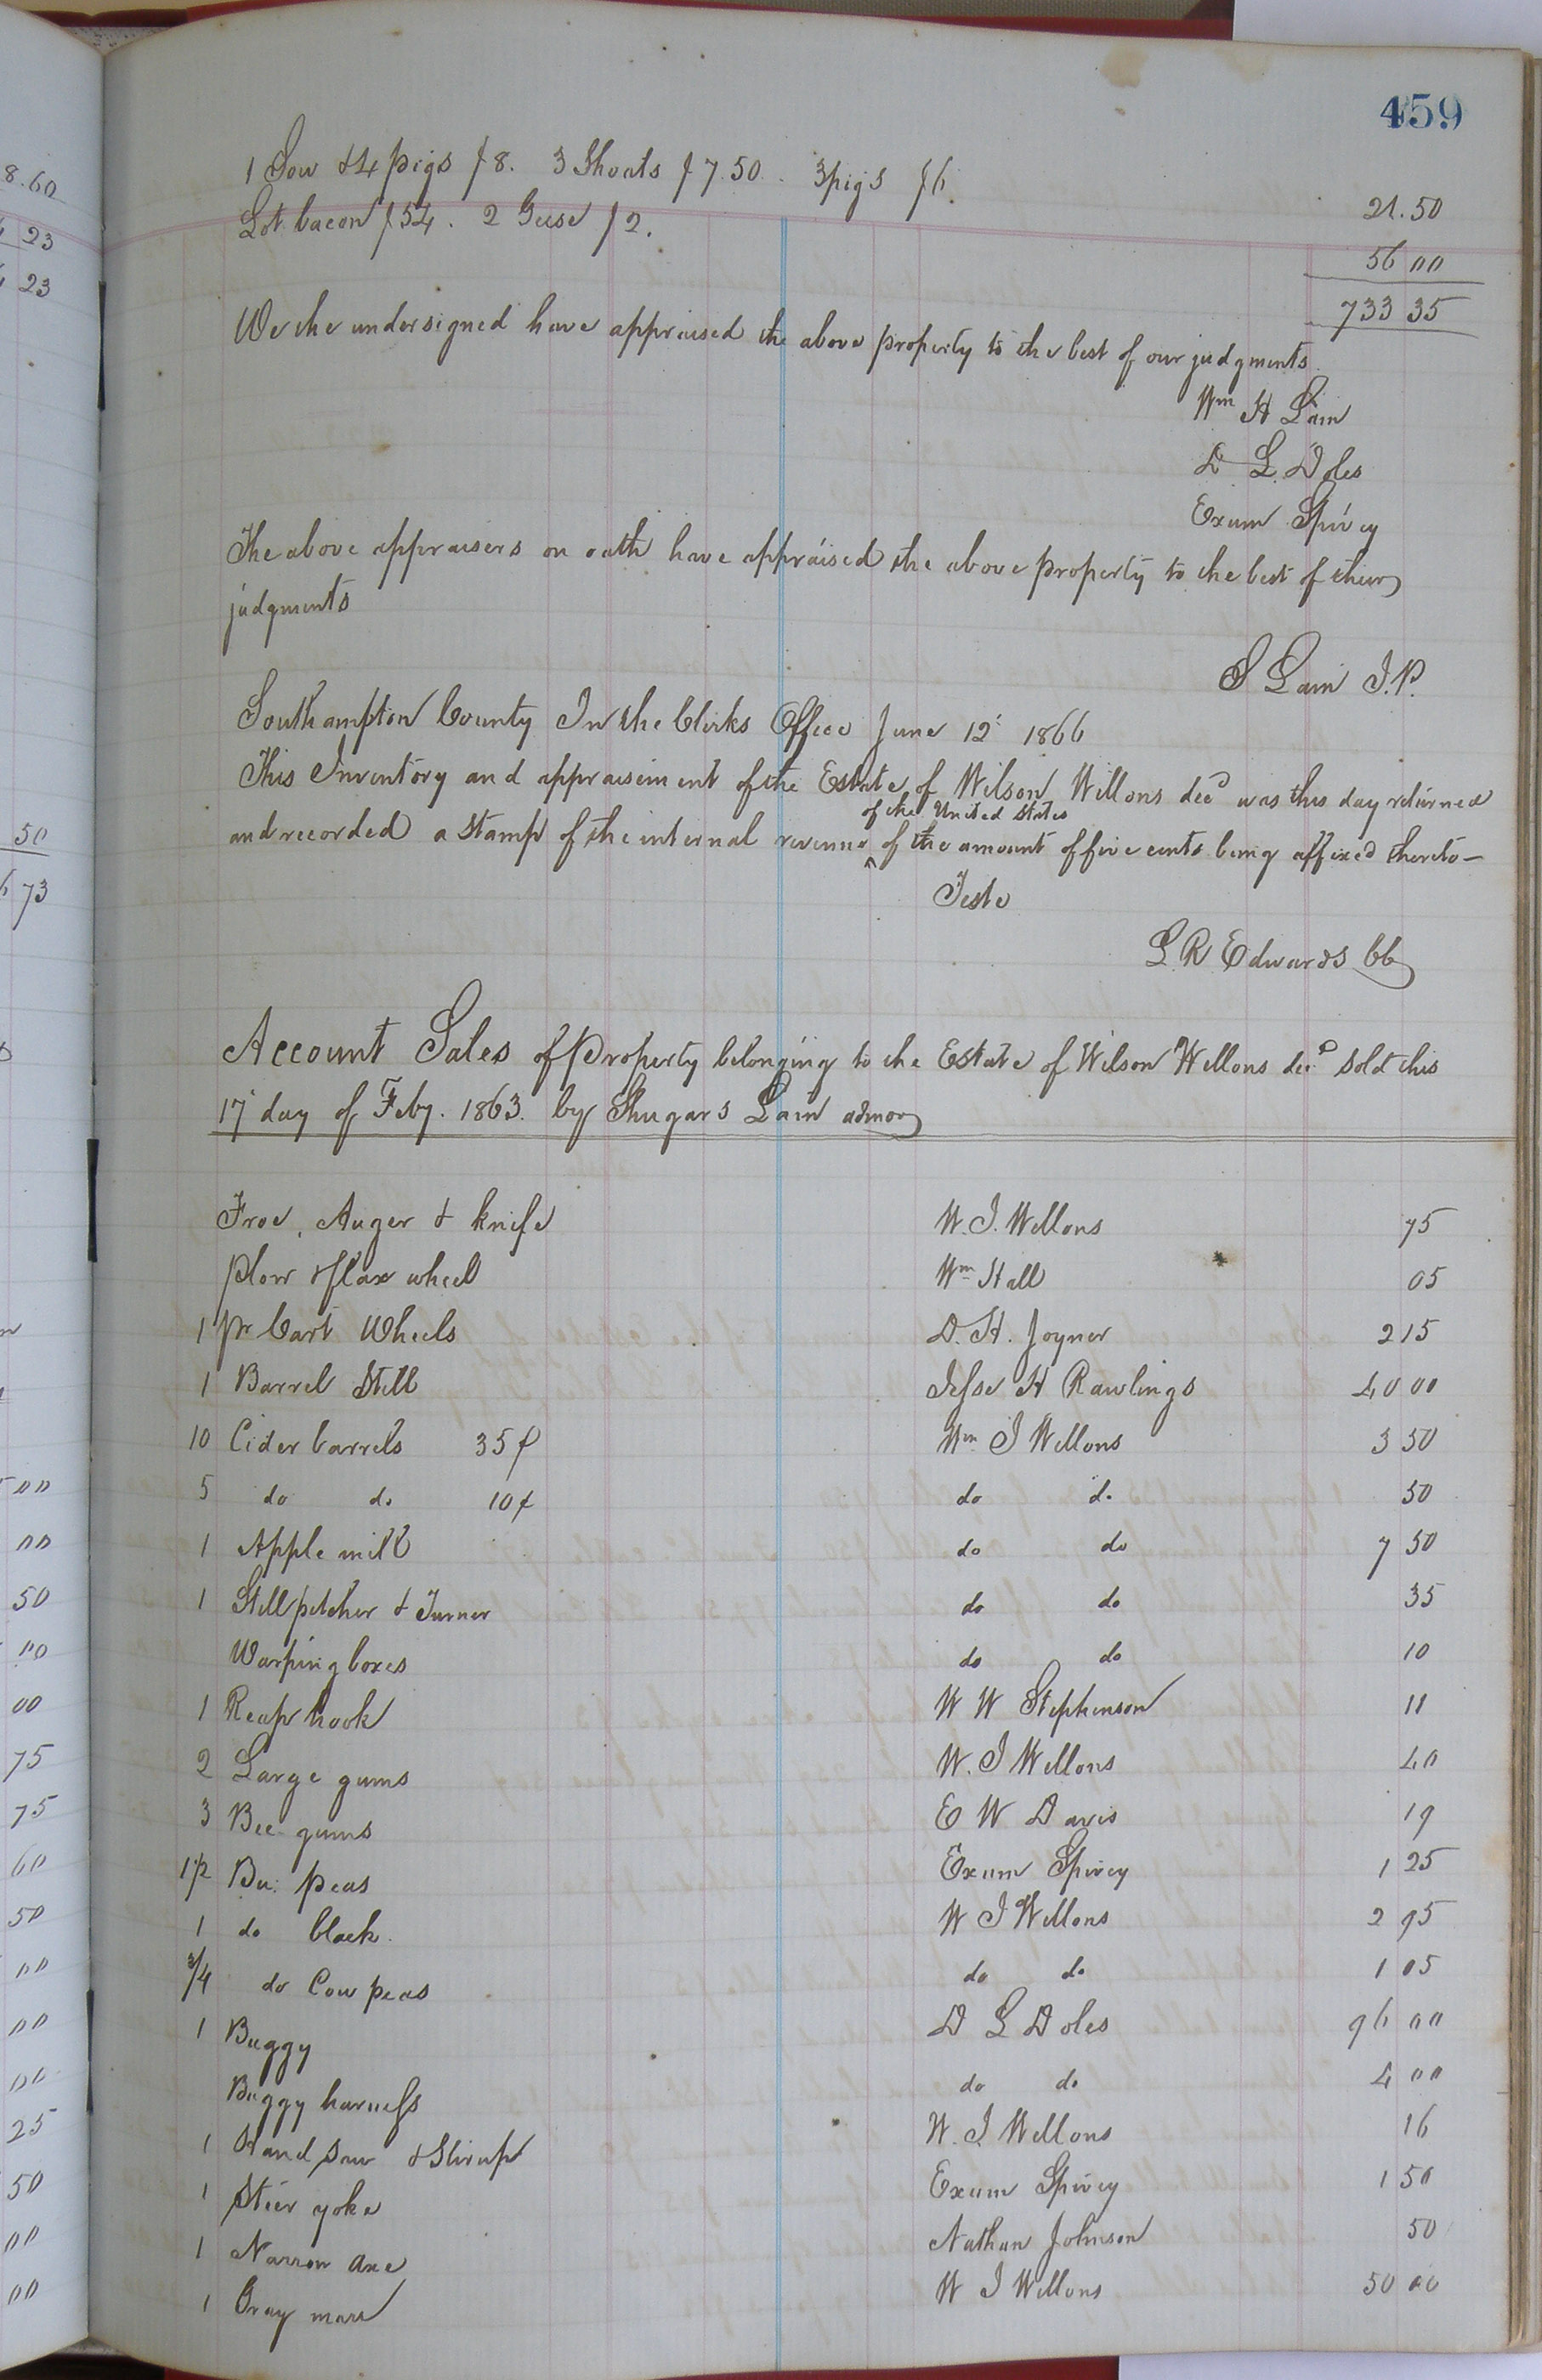 459
1 Sow & 4 pigs $8. 3 Shoats $7.50. 3 pigs $6. 21.50
Lot bacon $54. 2 Geese $2. 56 00
733 35
We the undersigned have appraised the above property to the best of our judgments
Wm H Lain
D L. Doles
Exum Spivey
The above appraisers on oath have appraised the above property to the best of their
judgments
S Lain J.P.
Southampton County In the Clerks Office June 12 1866
This Inventory and appraisement of the Estate of Wilson Wellons decd was this day returned
of the United States
and recorded a Stamp of the internal revenue ^ of the amount of five cents being affixed thereto—
Teste
L R Edwards CC
Account Sales of Property belonging to the Estate of Wilson Wellons decd sold this
17 day of Feby. 1863. by Shugars Lain admor
Froe, Auger & knife W. J. Wellons 75
Plow & flax wheel Wm Hall 05
1 pr Cart Wheels D. H. Joyner 2 15
1 Barrel Still Jesse H Rawlings 40 00
10 Cider barrels 35¢ Wm J Wellons 3 50
5 do do 10¢ do do 50
1 Apple mill do do 7 50
1 Still pitcher & Turner do do 35
Warping boxes do do 10
1 Reap hook W W Stephenson 11
2 Large gums W. J Wellons 40
3 Bee gums E W Davis 19
1½ Bu: peas Exum Spivey 1 25
1 do black W J Wellons 2 95
3/4 do Cow peas do do 1 05
1 Buggy D L Doles 96 00
Buggy harness do do 4 00
1 Hand saw & Stirup W. J Wellons 16
1 Steer yoke Exum Spivey 1 50
1 Narrow axe Nathan Johnson 50
1 Gray mare W J Wellons 50 00